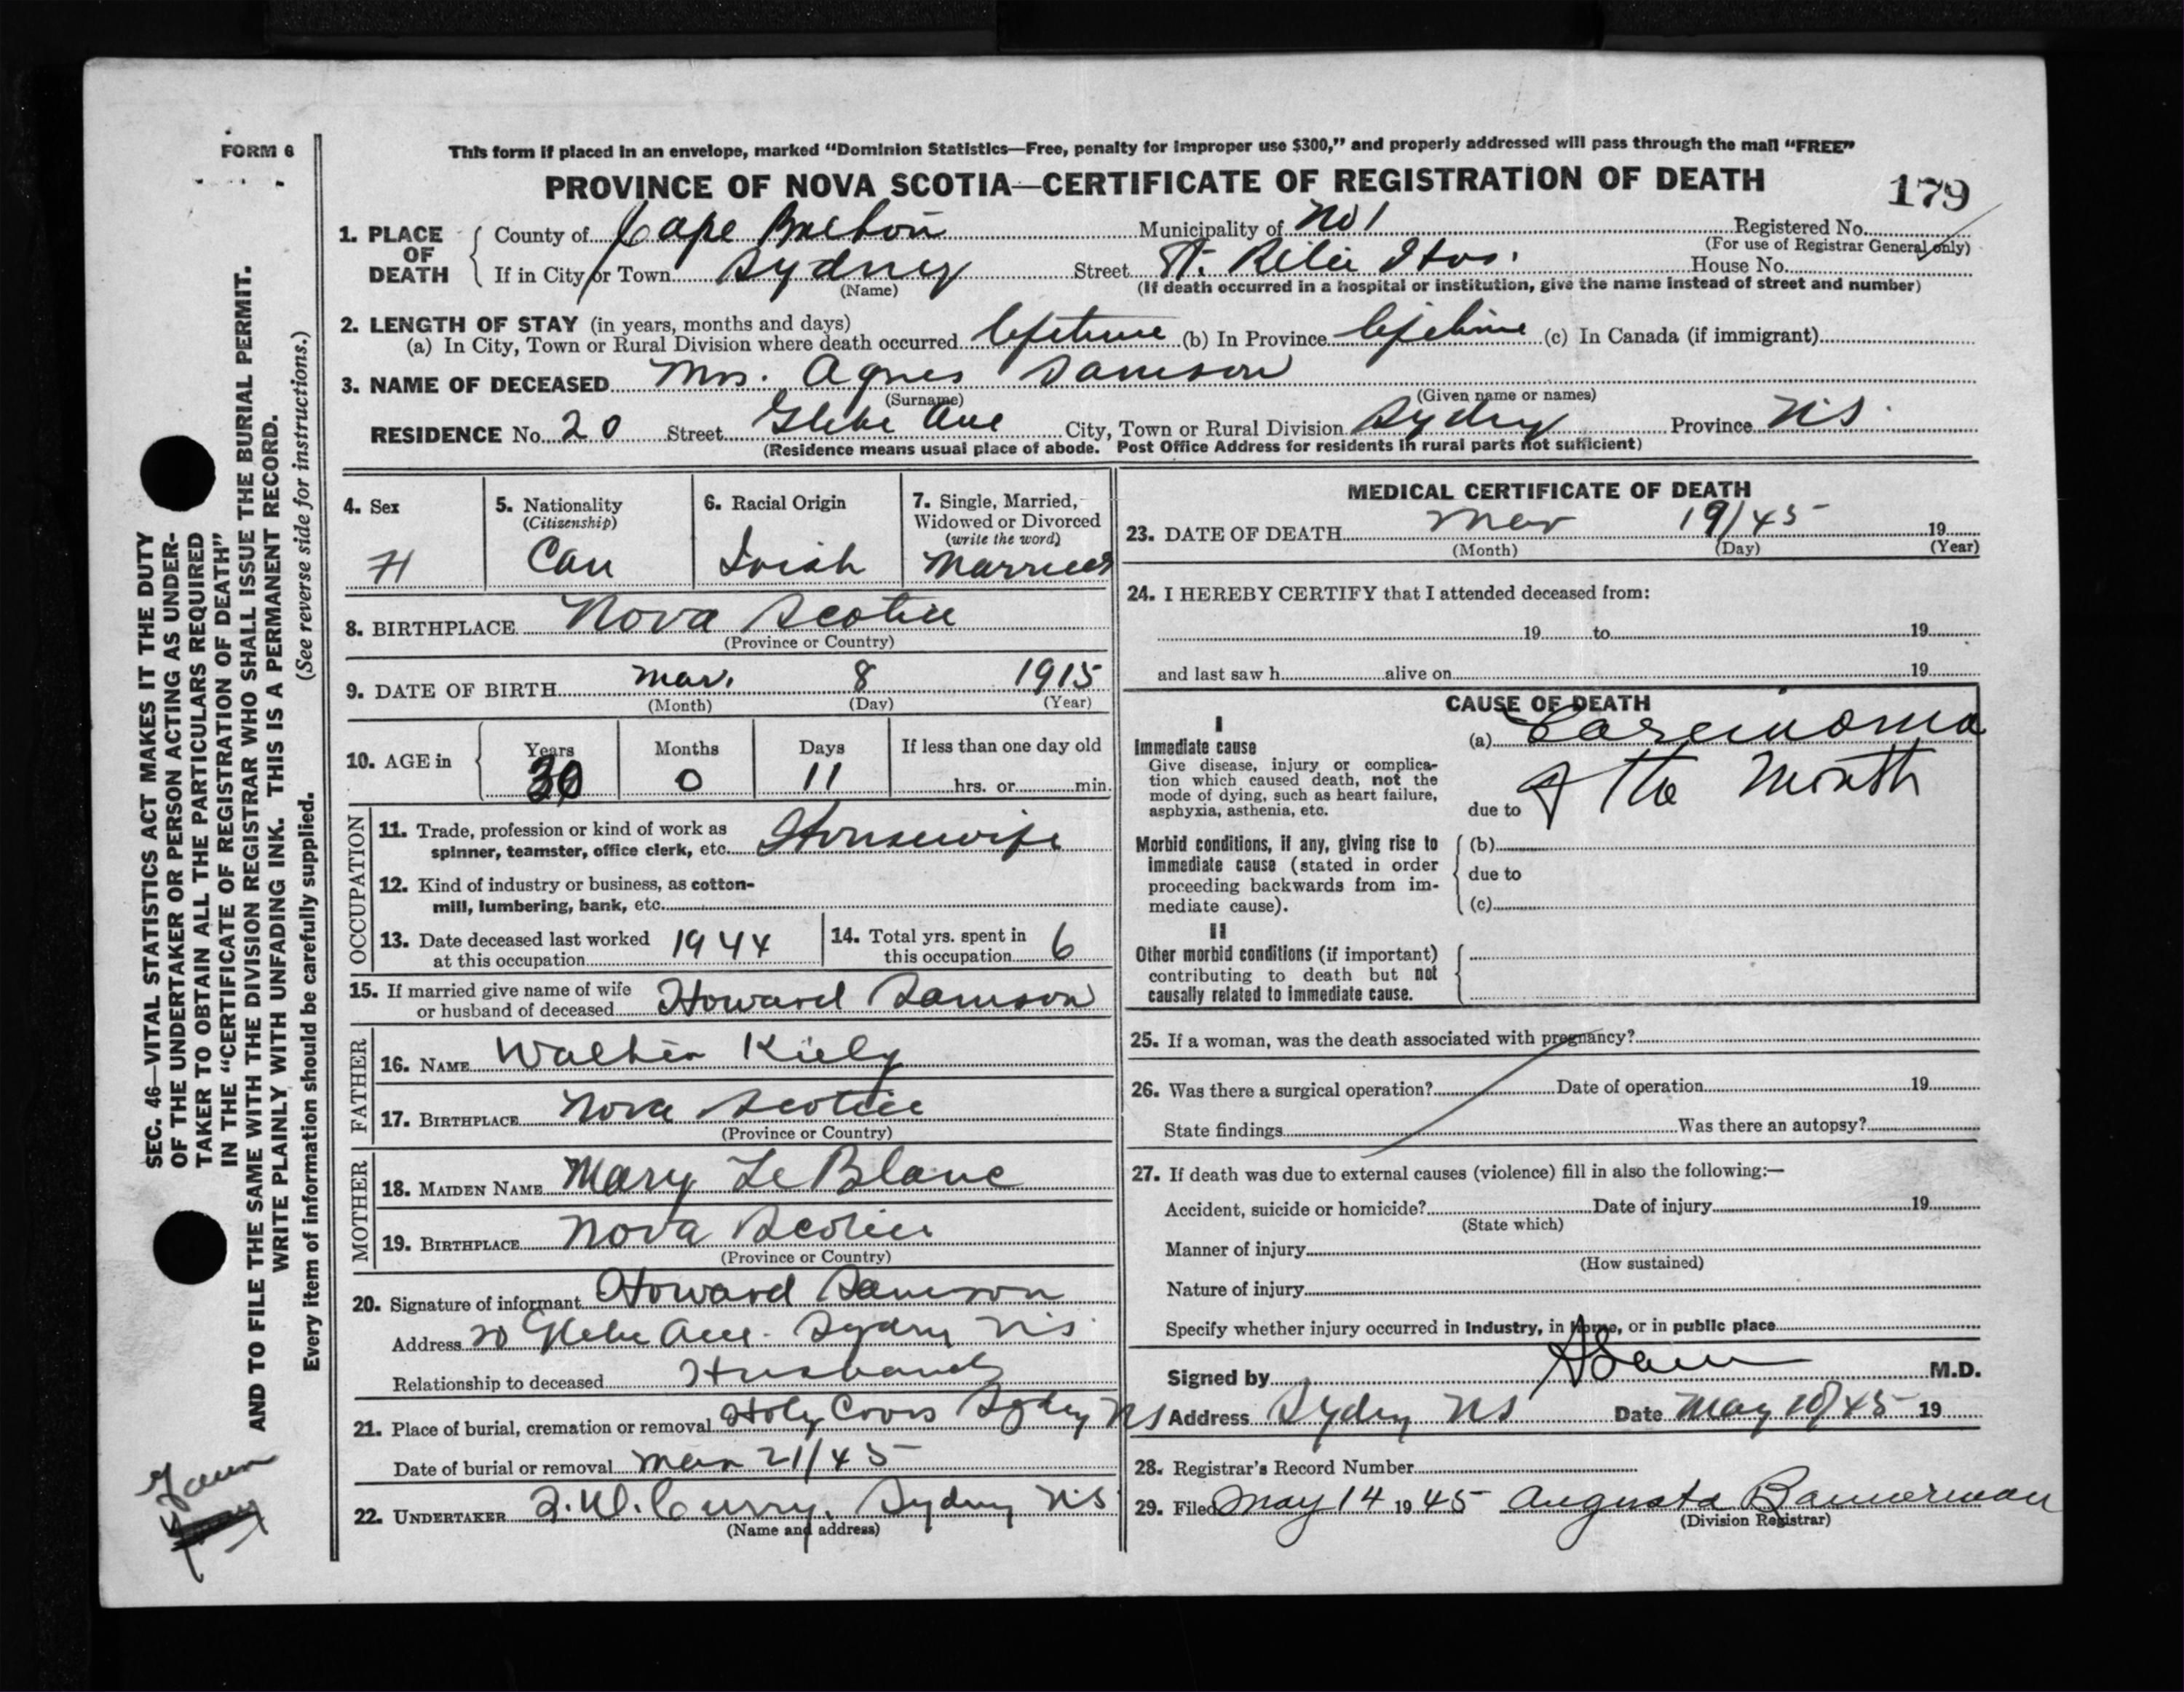 FORM 6
This form if placed in an envelope, marked “Dominion Statistics—Free, penalty for improper use $300,” and properly addressed will pass through the mail “FREE”
PROVINCE OF NOVA SCOTIA—CERTIFICATE OF REGISTRATION OF DEATH
179
1. PLACE OF DEATH
County of Cape Breton Municipality of No 1 Registered No.
(For use of Registrar General only)
If in City or Town Sydney Street St. Rita Hos. House No.
(Name) (If death occurred in a hospital or institution, give the name instead of street and number)
2. LENGTH OF STAY (in years, months and days)
(a) In City, Town or Rural Division where death occurred lifetime (b) In Province lifetime (c) In Canada (if immigrant)
3. NAME OF DECEASED Mrs. Agnes Samson
(Surname) (Given name or names)
RESIDENCE No. 20 Street Glebe Ave City, Town or Rural Division Sydney Province NS.
(Residence means usual place of abode. Post Office Address for residents in rural parts not sufficient)
4. Sex
5. Nationality
(Citizenship)
Can
6. Racial Origin
Irish
7. Single, Married,
Widowed or Divorced
(write the word)
Married
8. BIRTHPLACE Nova Scotia
(Province or Country)
9. DATE OF BIRTH Mar. 8 1915
(Month) (Day) (Year)
10. AGE in
Years Months Days If less than one day old
30 0 11 hrs. or min.
OCCUPATION
11. Trade, profession or kind of work as
spinner, teamster, office clerk, etc. Housewife
12. Kind of industry or business, as cotton-
mill, lumbering, bank, etc.
13. Date deceased last worked
at this occupation 1944
14. Total yrs. spent in
this occupation 6
15. If married give name of wife
or husband of deceased Howard Samson
FATHER
16. NAME Walter Kiely
17. BIRTHPLACE Nova Scotia
(Province or Country)
MOTHER
18. MAIDEN NAME Mary LeBlanc
19. BIRTHPLACE Nova Scotia
(Province or Country)
20. Signature of informant Howard Samson
Address 20 Glebe Ave. Sydney NS.
Relationship to deceased Husband
21. Place of burial, cremation or removal Holy Cross Sydney NS
Date of burial or removal Mar 21/45
22. UNDERTAKER Curry, Sydney NS
(Name and address)
MEDICAL CERTIFICATE OF DEATH
23. DATE OF DEATH Mar 19/45 19
(Month) (Day) (Year)
24. I HEREBY CERTIFY that I attended deceased from:
19 to 19
and last saw h alive on 19
CAUSE OF DEATH
I
Immediate cause
Give disease, injury or complica-
tion which caused death, not the
mode of dying, such as heart failure,
asphyxia, asthenia, etc.
(a) Carcinoma
due to of the Mouth
Morbid conditions, if any, giving rise to
immediate cause (stated in order
proceeding backwards from im-
mediate cause).
(b)
due to
(c)
II
Other morbid conditions (if important)
contributing to death but not
causally related to immediate cause.
25. If a woman, was the death associated with pregnancy?
26. Was there a surgical operation? Date of operation 19
State findings Was there an autopsy?
27. If death was due to external causes (violence) fill in also the following:—
Accident, suicide or homicide? Date of injury 19
(State which)
Manner of injury
(How sustained)
Nature of injury
Specify whether injury occurred in Industry, in home, or in public place
Signed by M.D.
Address Sydney NS Date May 10/45 19
28. Registrar's Record Number
29. Filed May 14 1945 Augusta Bannerman
(Division Registrar)
SEC. 46—VITAL STATISTICS ACT MAKES IT THE DUTY
OF THE UNDERTAKER OR PERSON ACTING AS UNDER-
TAKER TO OBTAIN ALL THE PARTICULARS REQUIRED
IN THE “CERTIFICATE OF REGISTRATION OF DEATH”
AND TO FILE THE SAME WITH THE DIVISION REGISTRAR WHO SHALL ISSUE THE BURIAL PERMIT.
WRITE PLAINLY WITH UNFADING INK. THIS IS A PERMANENT RECORD.
Every item of information should be carefully supplied. (See reverse side for instructions.)